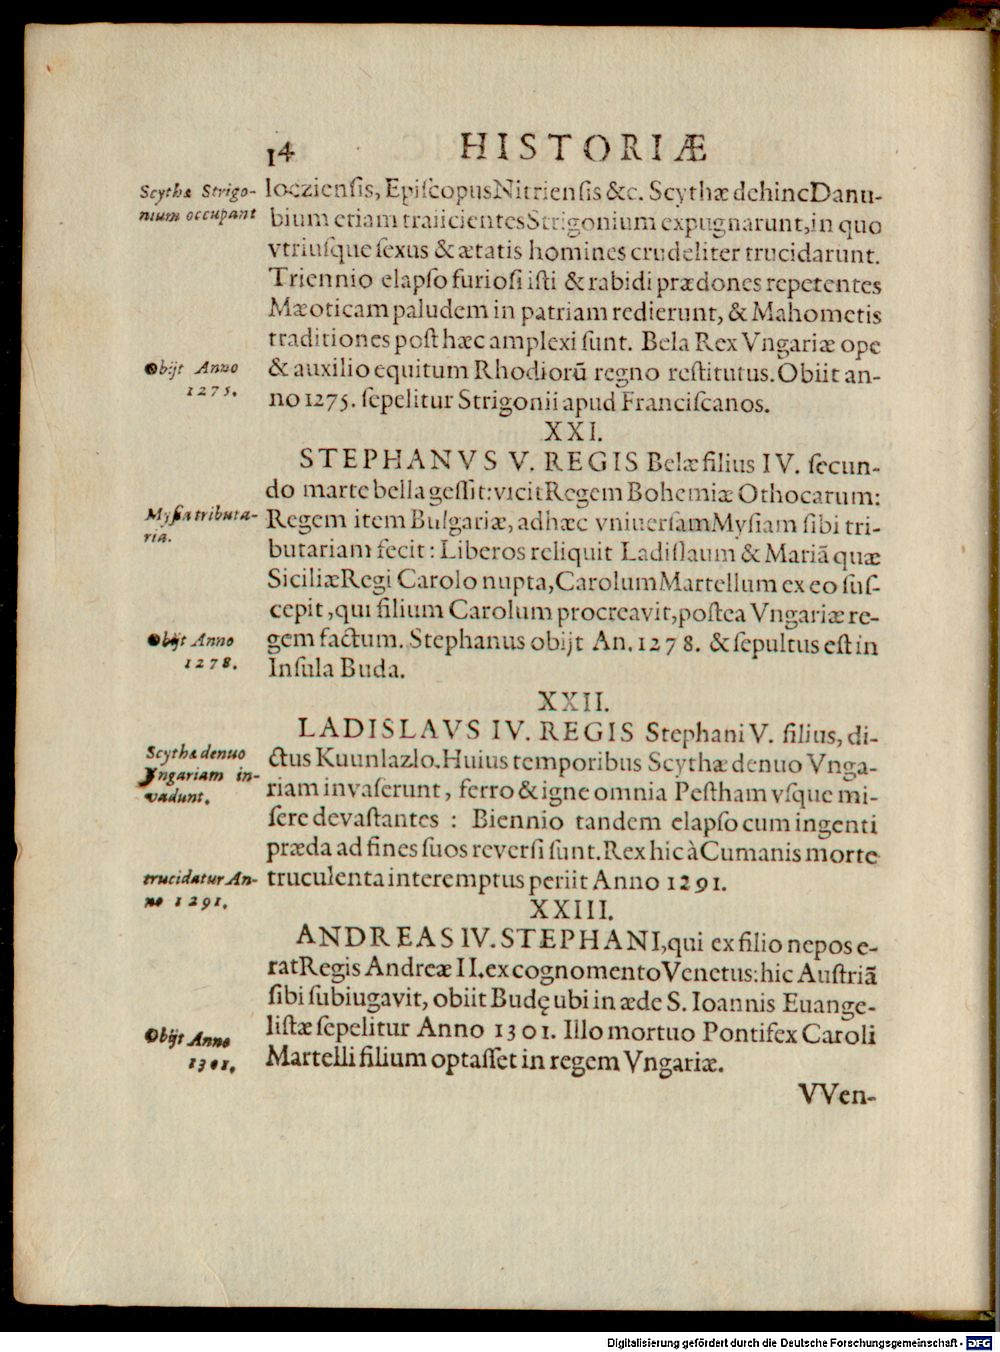 14 HISTORIÆ
Scythæ Strigo-
nium occupant
locziensis, Episcopus Nitriensis &c. Scythæ dehinc Danu-
bium etiam traiicientes Strigonium expugnarunt, in quo
vtriusque sexus & ætatis homines crudeliter trucidarunt.
Triennio elapso furiosi isti & rabidi prædones repetentes
Mæoticam paludem in patriam redierunt, & Mahometis
traditiones post hæc amplexi sunt. Bela Rex Vngariæ ope
& auxilio equitum Rhodiorū regno restitutus. Obiit an-
no 1275. sepelitur Strigonii apud Franciscanos.
Obijt Anno
1275.
XXI.
STEPHANVS V. REGIS Belæ filius IV. secun-
do marte bella gessit: vicit Regem Bohemiæ Othocarum:
Regem item Bulgariæ, adhæc vniuersam Mysiam sibi tri-
butariam fecit: Liberos reliquit Ladislaum & Mariā quæ
Siciliæ Regi Carolo nupta, Carolum Martellum ex eo sus-
cepit, qui filium Carolum procreavit, postea Vngariæ re-
gem factum. Stephanus obijt An. 1278. & sepultus est in
Insula Buda.
Mysia tributa-
ria.
Obijt Anno
1278.
XXII.
LADISLAVS IV. REGIS Stephani V. filius, di-
ctus Kuunlazlo. Huius temporibus Scythæ denuo Vnga-
riam invaserunt, ferro & igne omnia Pestham vsque mi-
sere devastantes : Biennio tandem elapso cum ingenti
præda ad fines suos reversi sunt. Rex hic à Cumanis morte
truculenta interemptus periit Anno 1291.
Scythæ denuo
Vngariam in-
vadunt.
trucidatur An-
no 1291.
XXIII.
ANDREAS IV. STEPHANI, qui ex filio nepos e-
rat Regis Andreæ II. ex cognomento Venetus: hic Austriā
sibi subiugavit, obiit Budę ubi in æde S. Ioannis Euange-
listæ sepelitur Anno 1301. Illo mortuo Pontifex Caroli
Martelli filium optasset in regem Vngariæ.
Obijt Anno
1301.
VVen-
Digitalisierung gefördert durch die Deutsche Forschungsgemeinschaft - DFG